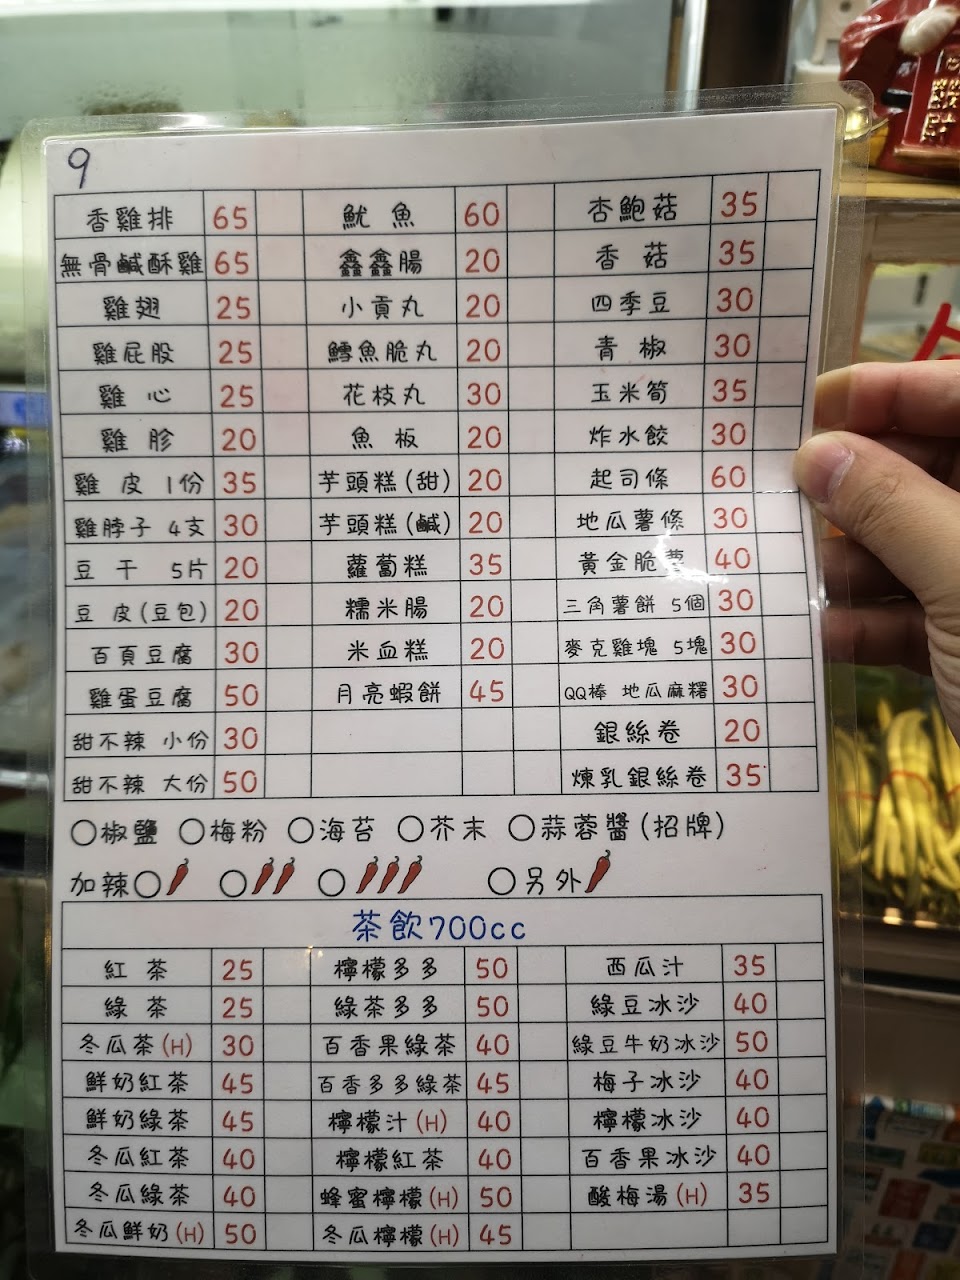 9
香雞排 65 魷魚 60 杏鮑菇 35
無骨鹹酥雞 65 鑫鑫腸 20 香菇 35
雞翅 25 小貢丸 20 四季豆 30
雞屁股 25 鱈魚脆丸 20 青椒 30
雞心 25 花枝丸 30 玉米筍 35
雞胗 20 魚板 20 炸水餃 30
雞皮1份 35 芋頭糕(甜) 20 起司條 60
雞脖子 4支 30 芋頭糕(鹹) 20 地瓜薯條 30
豆干 5片 20 蘿蔔糕 35 黃金脆薯 40
豆皮(豆包) 20 糯米腸 20 三角薯餅 5個 30
百頁豆腐 30 米血糕 20 麥克雞塊 5塊 30
雞蛋豆腐 50 月亮蝦餅 45 QQ棒 地瓜麻糬 30
甜不辣 小份 30 銀絲卷 20
甜不辣 大份 50 煉乳銀絲卷 35
○椒鹽 ○梅粉 ○海苔 ○芥末 ○蒜蓉醬(招牌)
加辣○ ○ ○ ○另外
茶飲700cc
紅茶 25 檸檬多多 50 西瓜汁 35
綠茶 25 綠茶多多 50 綠豆冰沙 40
冬瓜茶(H) 30 百香果綠茶 40 綠豆牛奶冰沙 50
鮮奶紅茶 45 百香多多綠茶 45 梅子冰沙 40
鮮奶綠茶 45 檸檬汁(H) 40 檸檬冰沙 40
冬瓜紅茶 40 檸檬紅茶 40 百香果冰沙 40
冬瓜綠茶 40 蜂蜜檸檬(H) 50 酸梅湯(H) 35
冬瓜鮮奶(H) 50 冬瓜檸檬(H) 45